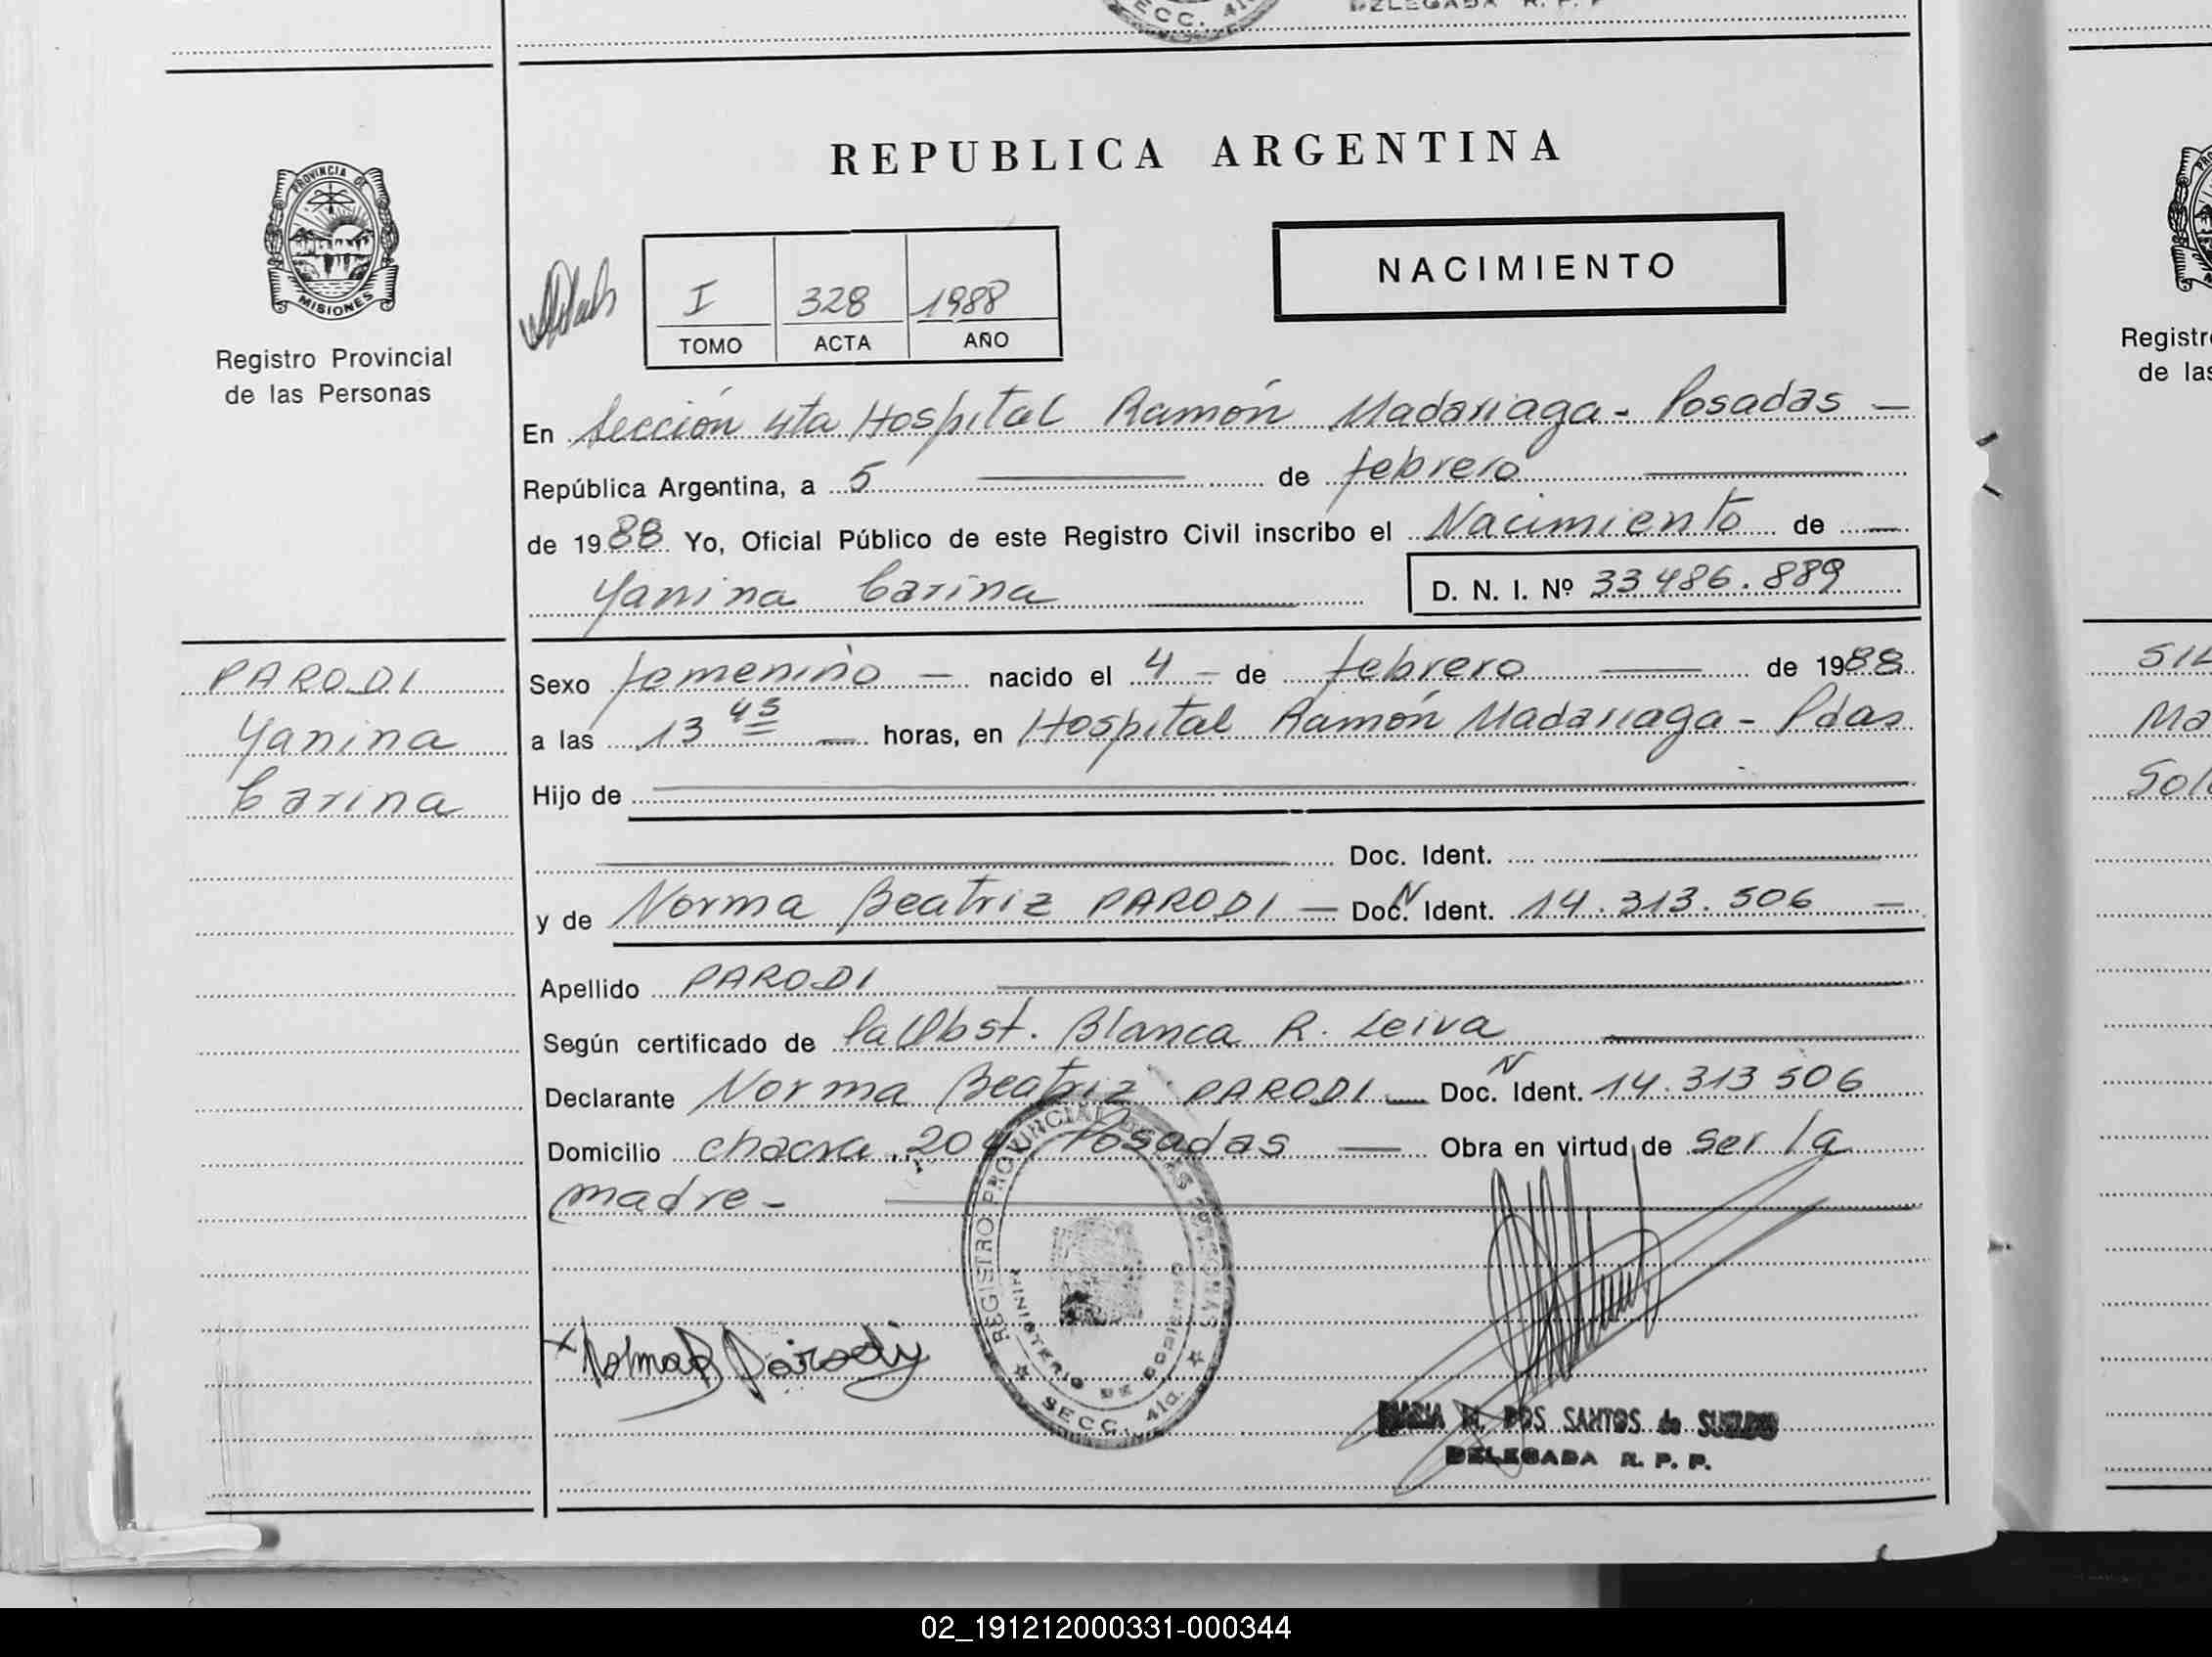 SECC. 41
DELEGADA R. P. P
REPUBLICA ARGENTINA
PROVINCIA DE
MISIONES
Registro Provincial
de las Personas
I 328 1988
TOMO ACTA AÑO
NACIMIENTO
En Sección 4ta Hospital Ramón Madariaga - Posadas —
República Argentina, a 5 — de febrero —
de 1988 Yo, Oficial Público de este Registro Civil inscribo el Nacimiento de —
Yanina Carina —
D. N. I. Nº 33486.889
PARODI
Yanina
Carina
Sexo femenino — nacido el 4 - de febrero — de 1988
a las 13 45 — horas, en Hospital Ramón Madariaga - Pdas
Hijo de
Doc. Ident.
y de Norma Beatriz PARODI — Doc. N Ident. 14.313.506 —
Apellido PARODI
Según certificado de la Obst. Blanca R. Leiva
Declarante Norma Beatriz PARODI — Doc. N Ident. 14.313 506
Domicilio chacra 204 Posadas — Obra en virtud de ser la
madre -
REGISTRO PROVINCIAL DE LAS PERSONAS
MINISTERIO DE GOBIERNO
SECC. 41a.
x Norma B Parody
MARIA M. DOS SANTOS de
DELEGADA R. P. P.
Registr
de las
SIL
Ma
Sol
02_191212000331-000344